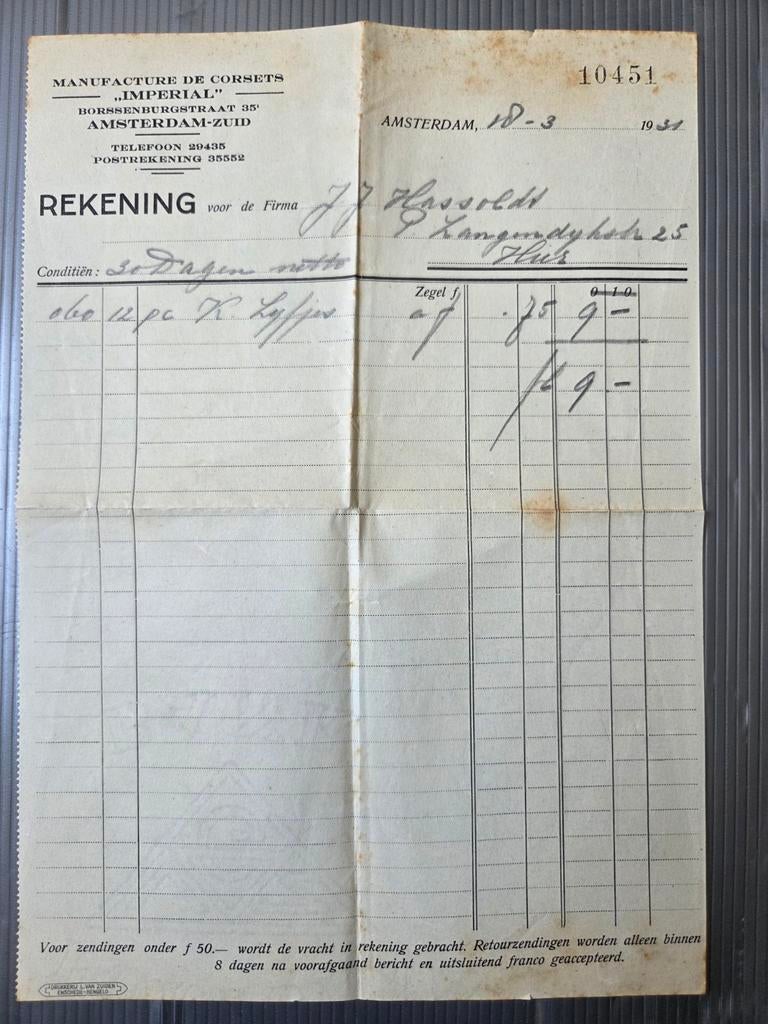 MANUFACTURE DE CORSETS
„IMPERIAL”
BORSSENBURGSTRAAT 35¹
AMSTERDAM-ZUID
TELEFOON 29435
POSTREKENING 35552
10451
AMSTERDAM, 18 - 3 1931
REKENING voor de Firma J J Hassoldt
P Langendykstr 25
Hier
Conditiën: 30 Dagen netto
Zegel f 0 10
060 12 pc K. Lyfjes a f .75 9 -
f 9 -
Voor zendingen onder f 50.— wordt de vracht in rekening gebracht. Retourzendingen worden alleen binnen
8 dagen na voorafgaand bericht en uitsluitend franco geaccepteerd.
DRUKKERIJ L. VAN ZUIDEN
ENSCHEDE-HENGELO